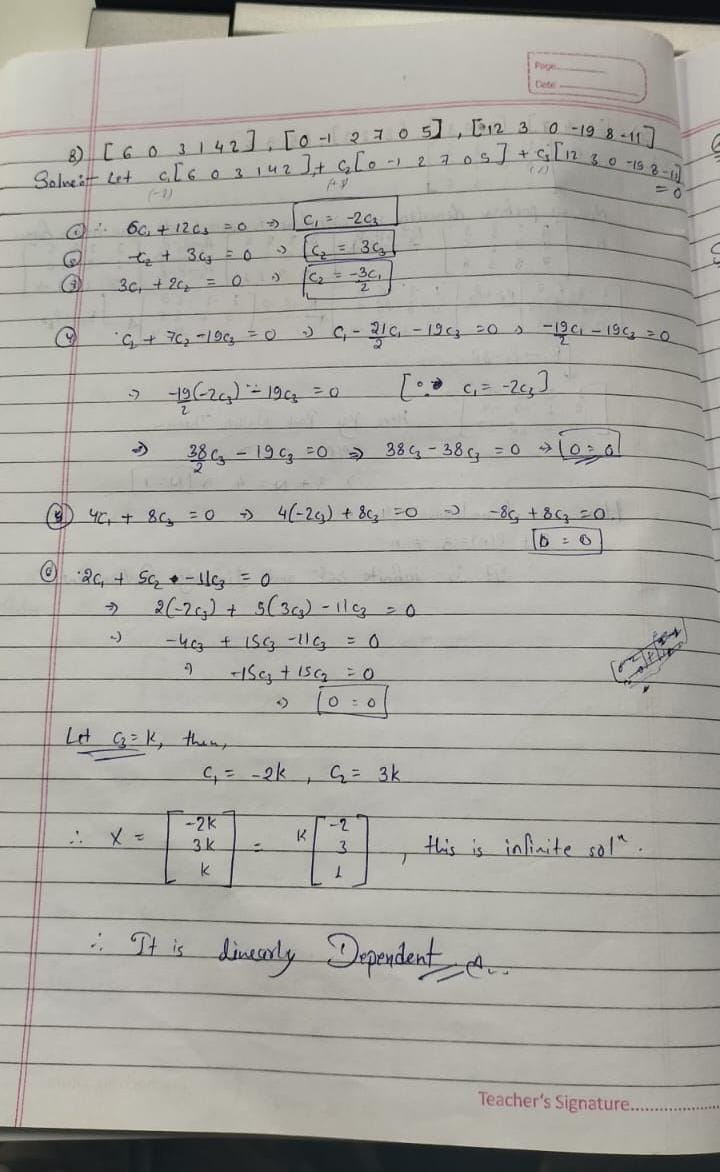 Page
Date
8) [6 0 3 1 4 2], [0 -1 2 7 0 5], [12 3 0 -19 8 -11]
Let C₁[6 0 3 1 4 2] + C₂[0 -1 2 7 0 5] + C₃[12 3 0 -19 8 -11]
= 0
① ∴ 6C₁ + 12C₃ = 0 ⇒ C₁ = -2C₃
② -C₂ + 3C₃ = 0 ⇒ C₂ = 3C₃
③ 3C₁ + 2C₂ = 0 ⇒ C₂ = -3C₁/2
④ C₁ + 7C₂ - 19C₃ = 0 ⇒ C₁ - 21/2 C₁ - 19C₃ = 0 ⇒ -19/2 C₁ - 19C₃ = 0
⇒ -19/2 (-2C₃) - 19C₃ = 0 [∵ C₁ = -2C₃]
⇒ 38/2 C₃ - 19C₃ = 0 ⇒ 38C₃ - 38C₃ = 0 ⇒ 0 = 0
⑤ 4C₁ + 8C₃ = 0 ⇒ 4(-2C₃) + 8C₃ = 0 ⇒ -8C₃ + 8C₃ = 0
0 = 0
⑥ 2C₁ + 5C₂ - 11C₃ = 0
⇒ 2(-2C₃) + 5(3C₃) - 11C₃ = 0
⇒ -4C₃ + 15C₃ - 11C₃ = 0
⇒ -15C₃ + 15C₂ = 0
⇒ 0 = 0
Let C₃ = K, then,
C₁ = -2k, C₂ = 3k
∴ X = [-2k 3k k] = K [-2 3 1], this is infinite solⁿ.
∴ It is linearly Dependent
Teacher's Signature